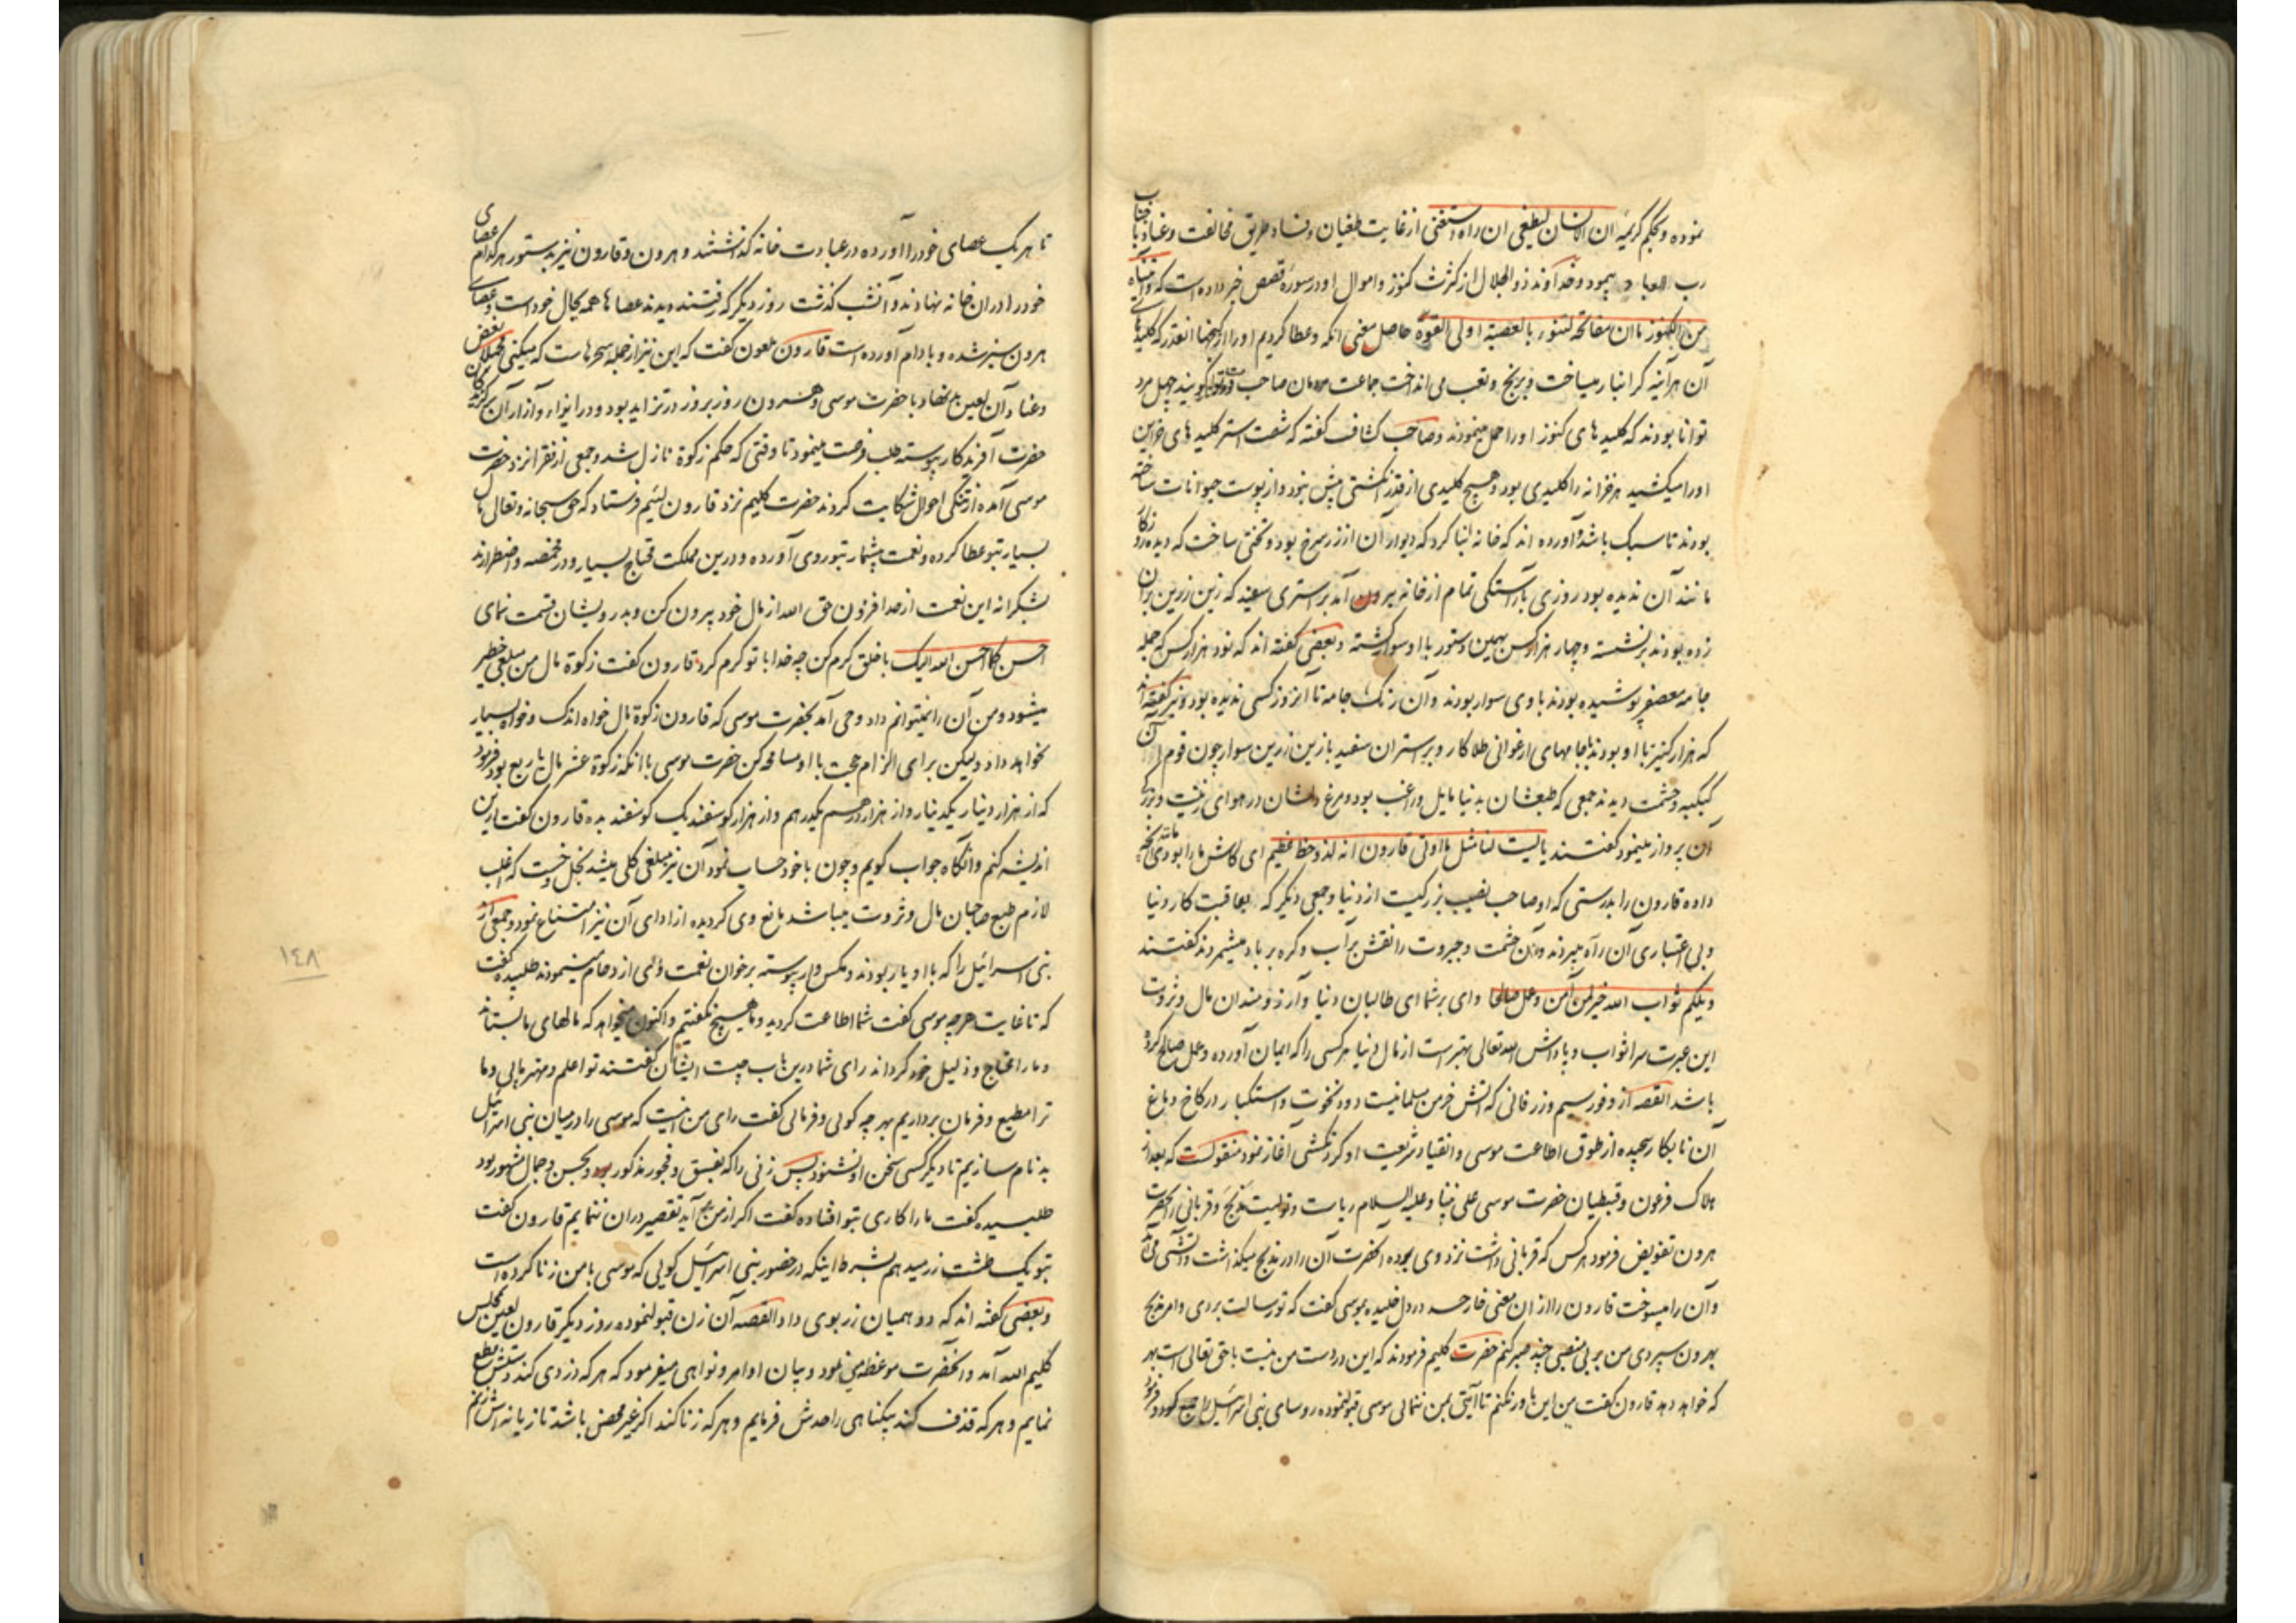 نموده و بحکم کریمه ان الانسان لیطغی ان راه استغنی از غایت طغیان و فساد طریق مخالفت و عناد با جناب
رب العباد پیمود و خداوند ذو الجلال از کثرت کنوز و اموال او در سورهٔ قصص خبر داده است که و آتیناه
من الکنوز ما ان مفاتحه لتنوء بالعصبة اولی القوة حاصل معنی آنکه و عطا کردیم او را از گنجها آنقدر که کلیدهای
آن هرآینه گرانبار میساخت و برنج و تعب می انداخت جماعت مردمان صاحب قوت را گویند چهل مرد
توانا بودند که کلیدهای کنوز او را حمل مینمودند و صاحب کشاف گفته که شصت استر کلیدهای خزاین
او را میکشید هر خزانه را کلیدی بود و هیچ کلیدی از قدر انکشتی بیش نبود و از پوست حیوانات ساخته
بودند تا سبک باشد و آورده اند که خانه بنا کرد که دیوار آن از زر سرخ بود و تختی ساخت که دیده روزکار
مانند آن ندیده بود روزی باراستکی تمام از خانه بیرون آمد بر استری سفید که زین زرین بر آن
زده بودند برنشسته و چهار هزار کس بهمین دستور با او سوار کشته و بعضی گفته اند که نود هزار کس که جمله
جامه معصفر پوشیده بودند با وی سوار بودند و آن رنک جامه تا آنروز کسی ندیده بود و نیز گفته اند
که هزار کنیز با او بودند با جامهای ارغوانی طلاکار و بر استران سفید با زین زرین سوار چون قوم آن
کبکبه و حشمت دیدند جمعی که طبعشان بدنیا مایل و راغب بود و مرغ دلشان در هوای زینت و بزرکی
آن پرواز مینمود گفتند یا لیت لنا مثل ما اوتی قارون انه لذو حظ عظیم ای کاش ما را بودی مانند آنچه
داده قارون را بدرستی که او صاحب نصیب بزرکیست از دنیا و جمعی دیگر که بعاقبت کار دنیا
و بی اعتباری آن راه میبردند و آن حشمت و جبروت را نقش بر آب و کره بر باد میشمردند گفتند
ویلکم ثواب الله خیر لمن آمن و عمل صالحا وای بر شما ای طالبان دنیا و آرزومندان مال و ثروت
این عبرت سرا ثواب و پاداش الله تعالی بهتر است از مال دنیا هر کسی را که ایمان آورده و عمل صالح کرده
باشد القصه از وفور سیم و زر فانی که آتش خرمن مسلمانیست دود نخوت و استکبار در کاخ دماغ
آن نابکار پیچیده از طوق اطاعت موسی و انقیاد شریعت او کردنکشی آغاز نمود منقولست که بعد از
هلاک فرعون و قبطیان حضرت موسی علی نبینا و علیه السلام ریاست و تولیت مذبح و قربانی را بحضرت
هرون تفویض فرمود هر کس که قربانی داشت نزد وی برده آنحضرت آن را در مذبح میکذاشت و آتشی می آمد
و آن را میسوخت قارون را از آن معنی خار حسد در دل خلیده بموسی گفت که تو رسالت بردی و امر مذبح
بهرون سپردی من بر بی منصبی چند صبر کنم حضرت کلیم فرمودند که این در دست من نیست با حق تعالی است بهر
که خواهد دهد قارون گفت من این باور نکنم تا آیتی بمن ننمائی موسی قبول نموده روسای بنی اسرائیل را جمع کرد و فرمود
تا هر یک عصای خود را آورده در عبادت خانه کذاشتند و هرون و قارون نیز بدستور هر کدام عصای
خود را در آن خانه نهادند و آنشب کذشت روز دیگر که رفتند دیدند عصاها همه بحال خود است و عصای
هرون سبز شده و بادام آورده است قارون ملعون گفت که این نیز از جمله سحرهاست که میکنی بعض
و عناد آن لعین با حضرت موسی و هرون روز بروز در تزاید بود و در ایذاء و آزار آن
حضرت آفریدکار پیوسته طلب فرصت مینمود تا وقتی که حکم زکوة نازل شد و جمعی از فقرا نزد حضرت
موسی آمده از تنکی احوال شکایت کردند حضرت کلیم نزد قارون لئیم فرستاد که حق سبحانه و تعالی مال
بسیار بتو عطا کرده و نعمت بیشمار بتو روی آورده و درین مملکت محتاج بسیار و در مخمصه و اضطرارند
بشکرانه این نعمت از صد افزون حق الله از مال خود بیرون کن و بدرویشان قسمت نمای
احسن کما احسن الله الیک با خلق کرم کن چه خدا با تو کرم کرد قارون گفت زکوة مال من مبلغی خطیر
میشود و من آن را نمیتوانم داد وحی آمد بحضرت موسی که قارون زکوة مال خواه اندک و خواه بسیار
نخواهد داد ولیکن برای الزام حجت با او مسامحه کن حضرت موسی با آنکه زکوة عشر مال یا ربع بود فرمود
که از هزار دینار یکدینار و از هزار درهم یکدرهم و از هزار کوسفند یک کوسفند بده قارون گفت درین
اندیشه کنم و آنکاه جواب کویم و چون با خود حساب نمود آن نیز مبلغی کلی میشد بخل و خست که اغلب
لازم طبع صاحبان مال و ثروت میباشد مانع وی کردیده از ادای آن نیز امتناع نمود و جمعی از
بنی اسرائیل را که با او یار بودند و مکس وار پیوسته برخوان نعمت وی ازدحام مینمودند طلبیده گفت
که تا غایت هر چه موسی گفت شما اطاعت کردید و ما هیچ نکفتیم و اکنون میخواهد که مالهای ما بستاند
و ما را محتاج و ذلیل خود کرداند رای شما درین باب چیست ایشان گفتند تو اعلم و مهتر مائی و ما
ترا مطیع و فرمان برداریم بهر چه کوئی و فرمائی گفت رای من اینست که موسی را در میان بنی اسرائیل
بد نام سازیم تا دیگر کسی سخن او نشنود پس زنی را که بفسق و فجور مذکور بود و بحسن و جمال مشهور بود
طلبیده گفت ما را کاری بتو افتاده گفت اکر از من بیاید تقصیر در آن ننمایم قارون گفت
بتو یک طشت زر میدهم بشرط اینکه در حضور بنی اسرائیل کویی که موسی با من زنا کرده است
و بعضی گفته اند که دو همیان زر بوی داد القصه آن زن قبول نموده روز دیگر قارون لعین بمجلس
کلیم الله آمد و آنحضرت موعظه می نمود و بیان اوامر و نواهی میفرمود که هر که دزدی کند دستش قطع
نمایم و هر که قذف کند بیکناهی را حدش فرمایم و هر که زنا کند اکر غیر محصن باشد تازیانه اش زنم
١٤٨